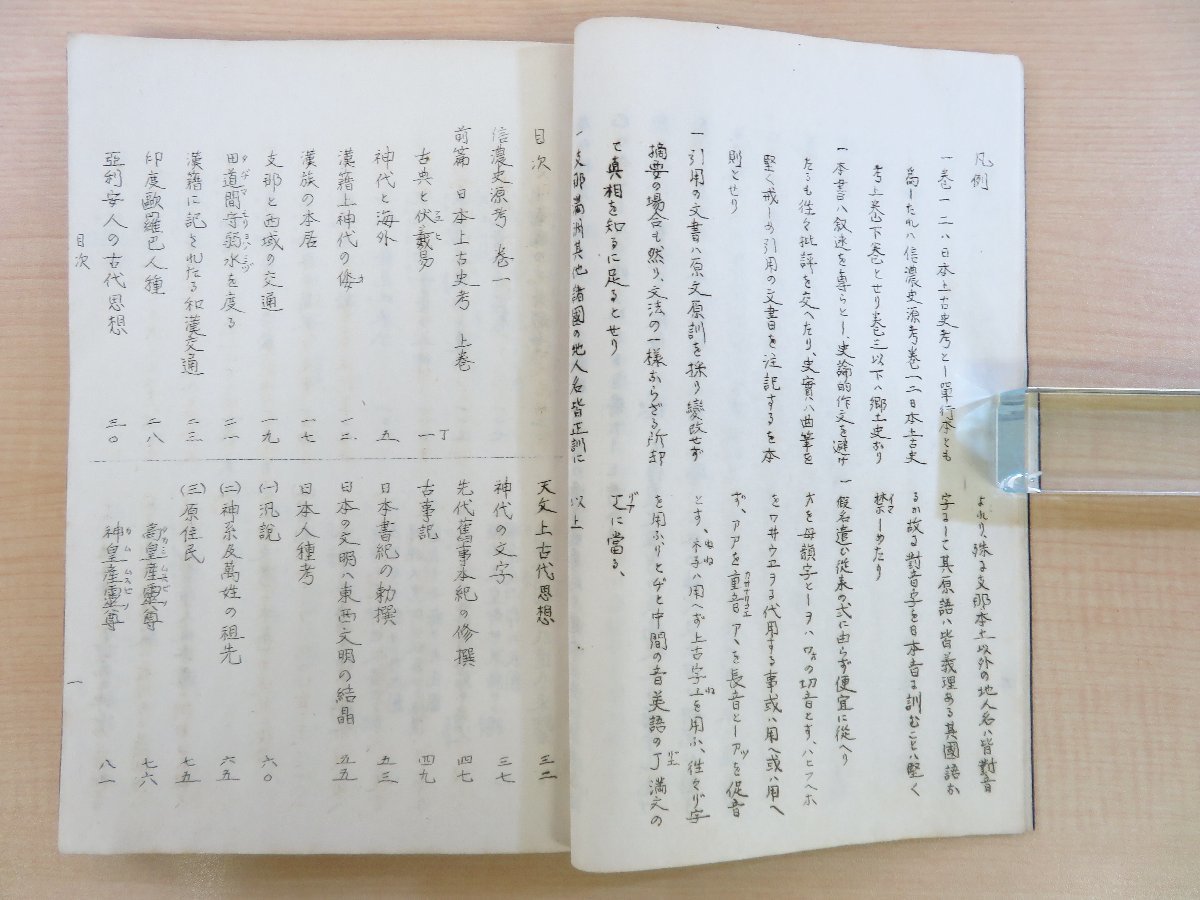 凡例
一巻一二ハ日本上古史考とし単行本とも
為したれハ信濃史源考巻一二日本上古史
考上巻下巻とせり巻三以下ハ郷土史なり
一本書ハ叙述を専らとし、史論的作文を避け
たるも往々批評を交へたり、史實ハ曲筆を
堅く戒しめ引用の文書目を注記するを本
則とせり
一引用の文書ハ原文原訓を採り變改せず
摘要の場合も然り、文法の一様ならざる所却
て真相を知るに足るとせり
一支那満洲其他諸國の地人名皆正訓に
よれり殊に支那本土以外の地人名ハ皆對音
字にして其原語ハ皆義理ある其國語な
るが故る對音字を日本音に訓むことハ堅く
禁しめたり
一假名遣い従来の式に由らず便宜に從へり
を母韻字としヲハ の切音とす、ハヒフヘホ
をワヰウヱヲに代用する事或ハ用へ或ハ用へ
ず、アアを重音アヽを長音としアッを促音
とす、子ハ用へず上古字 を用ふ、往々ヂ字
を用ふりとデと中間の音英語のJ 満文の
に當る、
以上
目次
信濃史源考 巻一
前篇 日本上古史考 上巻
古典と伏羲易 一丁
神代と海外 五
漢籍上神代の條 一二
漢族の本居 一七
支那と西域の交通 一九
田道間守弱水を度る 二一
漢籍に記されたる和漢交通 二三
印度歐羅巴人種 二八
亜利安人の古代思想 三〇
天文上古代思想 三二
神代の文字 三七
先代舊事本紀の修撰 四七
古事記 四九
日本書紀の勅撰 五三
日本の文明ハ東西文明の結晶 五五
日本人種考
(一)汎說 六〇
(二)神系及萬姓の祖先 六五
(三)原住民 七五
高皇産靈尊 七六
神皇産靈尊 八一
目次
一